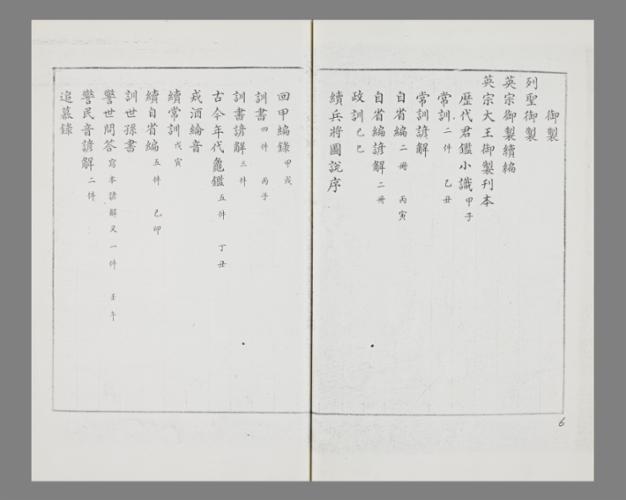 御製
列聖御製
英宗御製續編
英宗大王御製刊本
歷代君鑑小識 甲子
常訓 二件 乙丑
常訓諺解
自省編 二冊 丙寅
自省編諺解 二冊
政訓 己巳
續兵將圖說序
回甲編錄 甲戌
訓書 四件 丙子
訓書諺解 三件
古今年代龜鑑 五件 丁丑
戒酒綸音
續常訓 戊寅
續自省編 五件 己卯
訓世孫書
警世問答 寫本諺解又一件 壬午
警民音諺解 二件
追慕錄
6